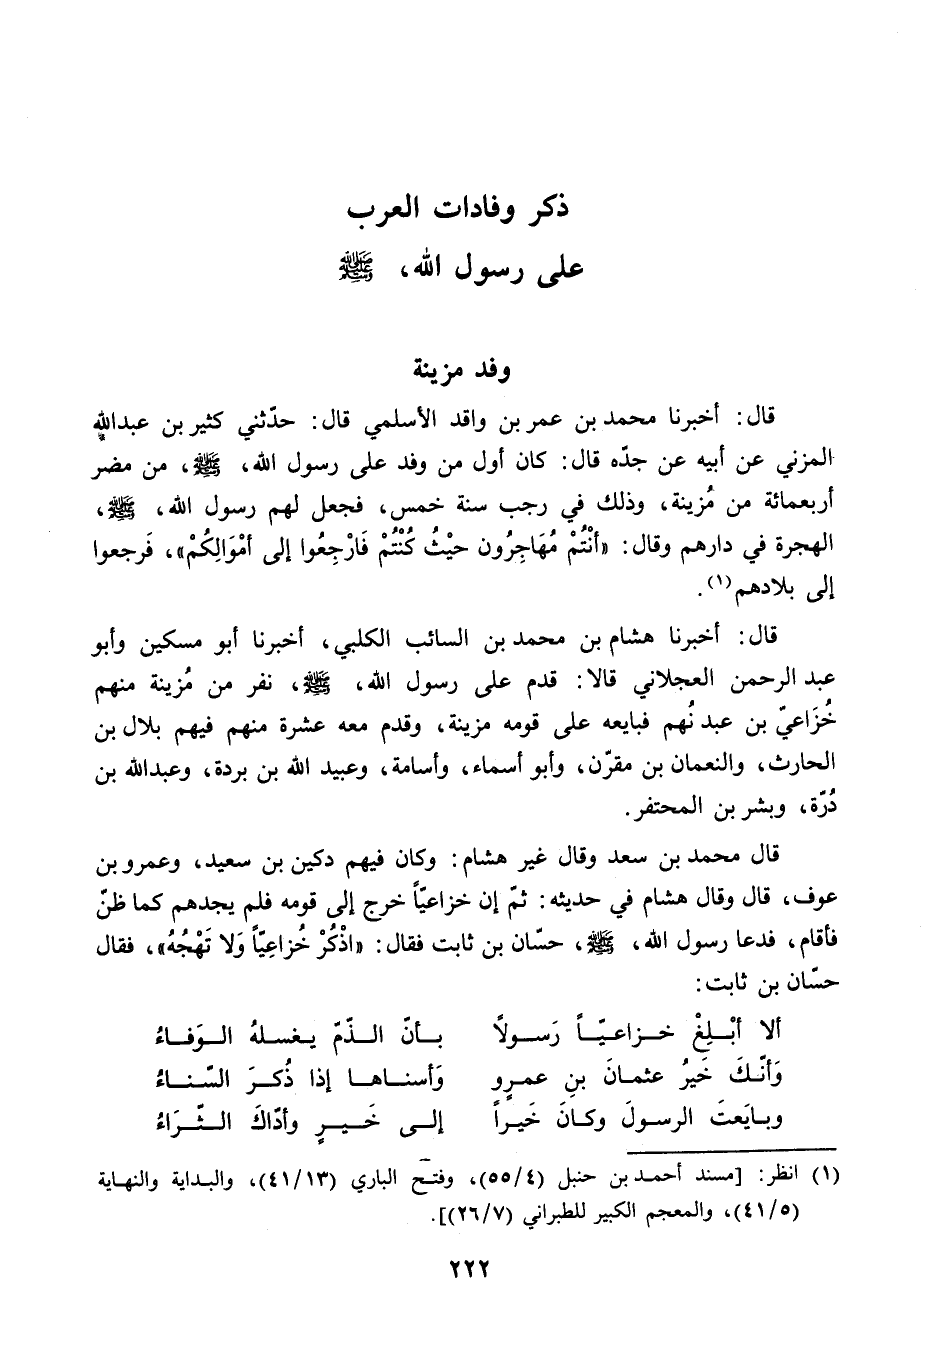 ذكر وفادات العرب
على رسول الله، ﷺ
وفد مزينة
قال: أخبرنا محمد بن عمر بن واقد الأسلمي قال: حدّثني كثير بن عبدالله
المزني عن أبيه عن جدّه قال: كان أول من وفد على رسول الله، ﷺ، من مضر
أربعمائة من مُزينة، وذلك في رجب سنة خمس، فجعل لهم رسول الله، ﷺ،
الهجرة في دارهم وقال: «أنْتُمْ مُهَاجِرُون حيْثُ كُنْتُمْ فَارْجِعُوا إلى أمْوَالِكُمْ»، فَرجعوا
إلى بلادهم(١).
قال: أخبرنا هشام بن محمد بن السائب الكلبي، أخبرنا أبو مسكين وأبو
عبد الرحمن العجلاني قالا: قدم على رسول الله، ﷺ، نفر من مُزينة منهم
خُزَاعيّ بن عبد نُهم فبايعه على قومه مزينة، وقدم معه عشرة منهم فيهم بلال بن
الحارث، والنعمان بن مقرّن، وأبو أسماء، وأسامة، وعبيد الله بن بردة، وعبدالله بن
دُرّة، وبشر بن المحتفر.
قال محمد بن سعد وقال غير هشام: وكان فيهم دكين بن سعيد، وعمرو بن
عوف، قال وقال هشام في حديثه: ثمّ إن خزاعيّاً خرج إلى قومه فلم يجدهم كما ظنّ
فأقام، فدعا رسول الله، ﷺ، حسّان بن ثابت فقال: «اذْكُرْ خُزاعِيّاً وَلا تَهْجُهُ»، فقال
حسّان بن ثابت:
ألا أبْلِغْ خزاعيّاً رَسولاً بأنّ الذّمّ يغسلهُ الوَفاءُ
وَأنّكَ خَيرُ عثمانَ بنِ عمرٍو وَأسناها إذا ذُكرَ السّناءُ
وبايَعتَ الرسولَ وكانَ خَيراً إلى خَيرٍ وأدّاكَ الثّرَاءُ
(١) انظر: [مسند أحمد بن حنبل (٥٥/٤)، وفتح الباري (٤١/١٣)، والبداية والنهاية
(٤١/٥)، والمعجم الكبير للطبراني (٢٦/٧)].
٢٢٢